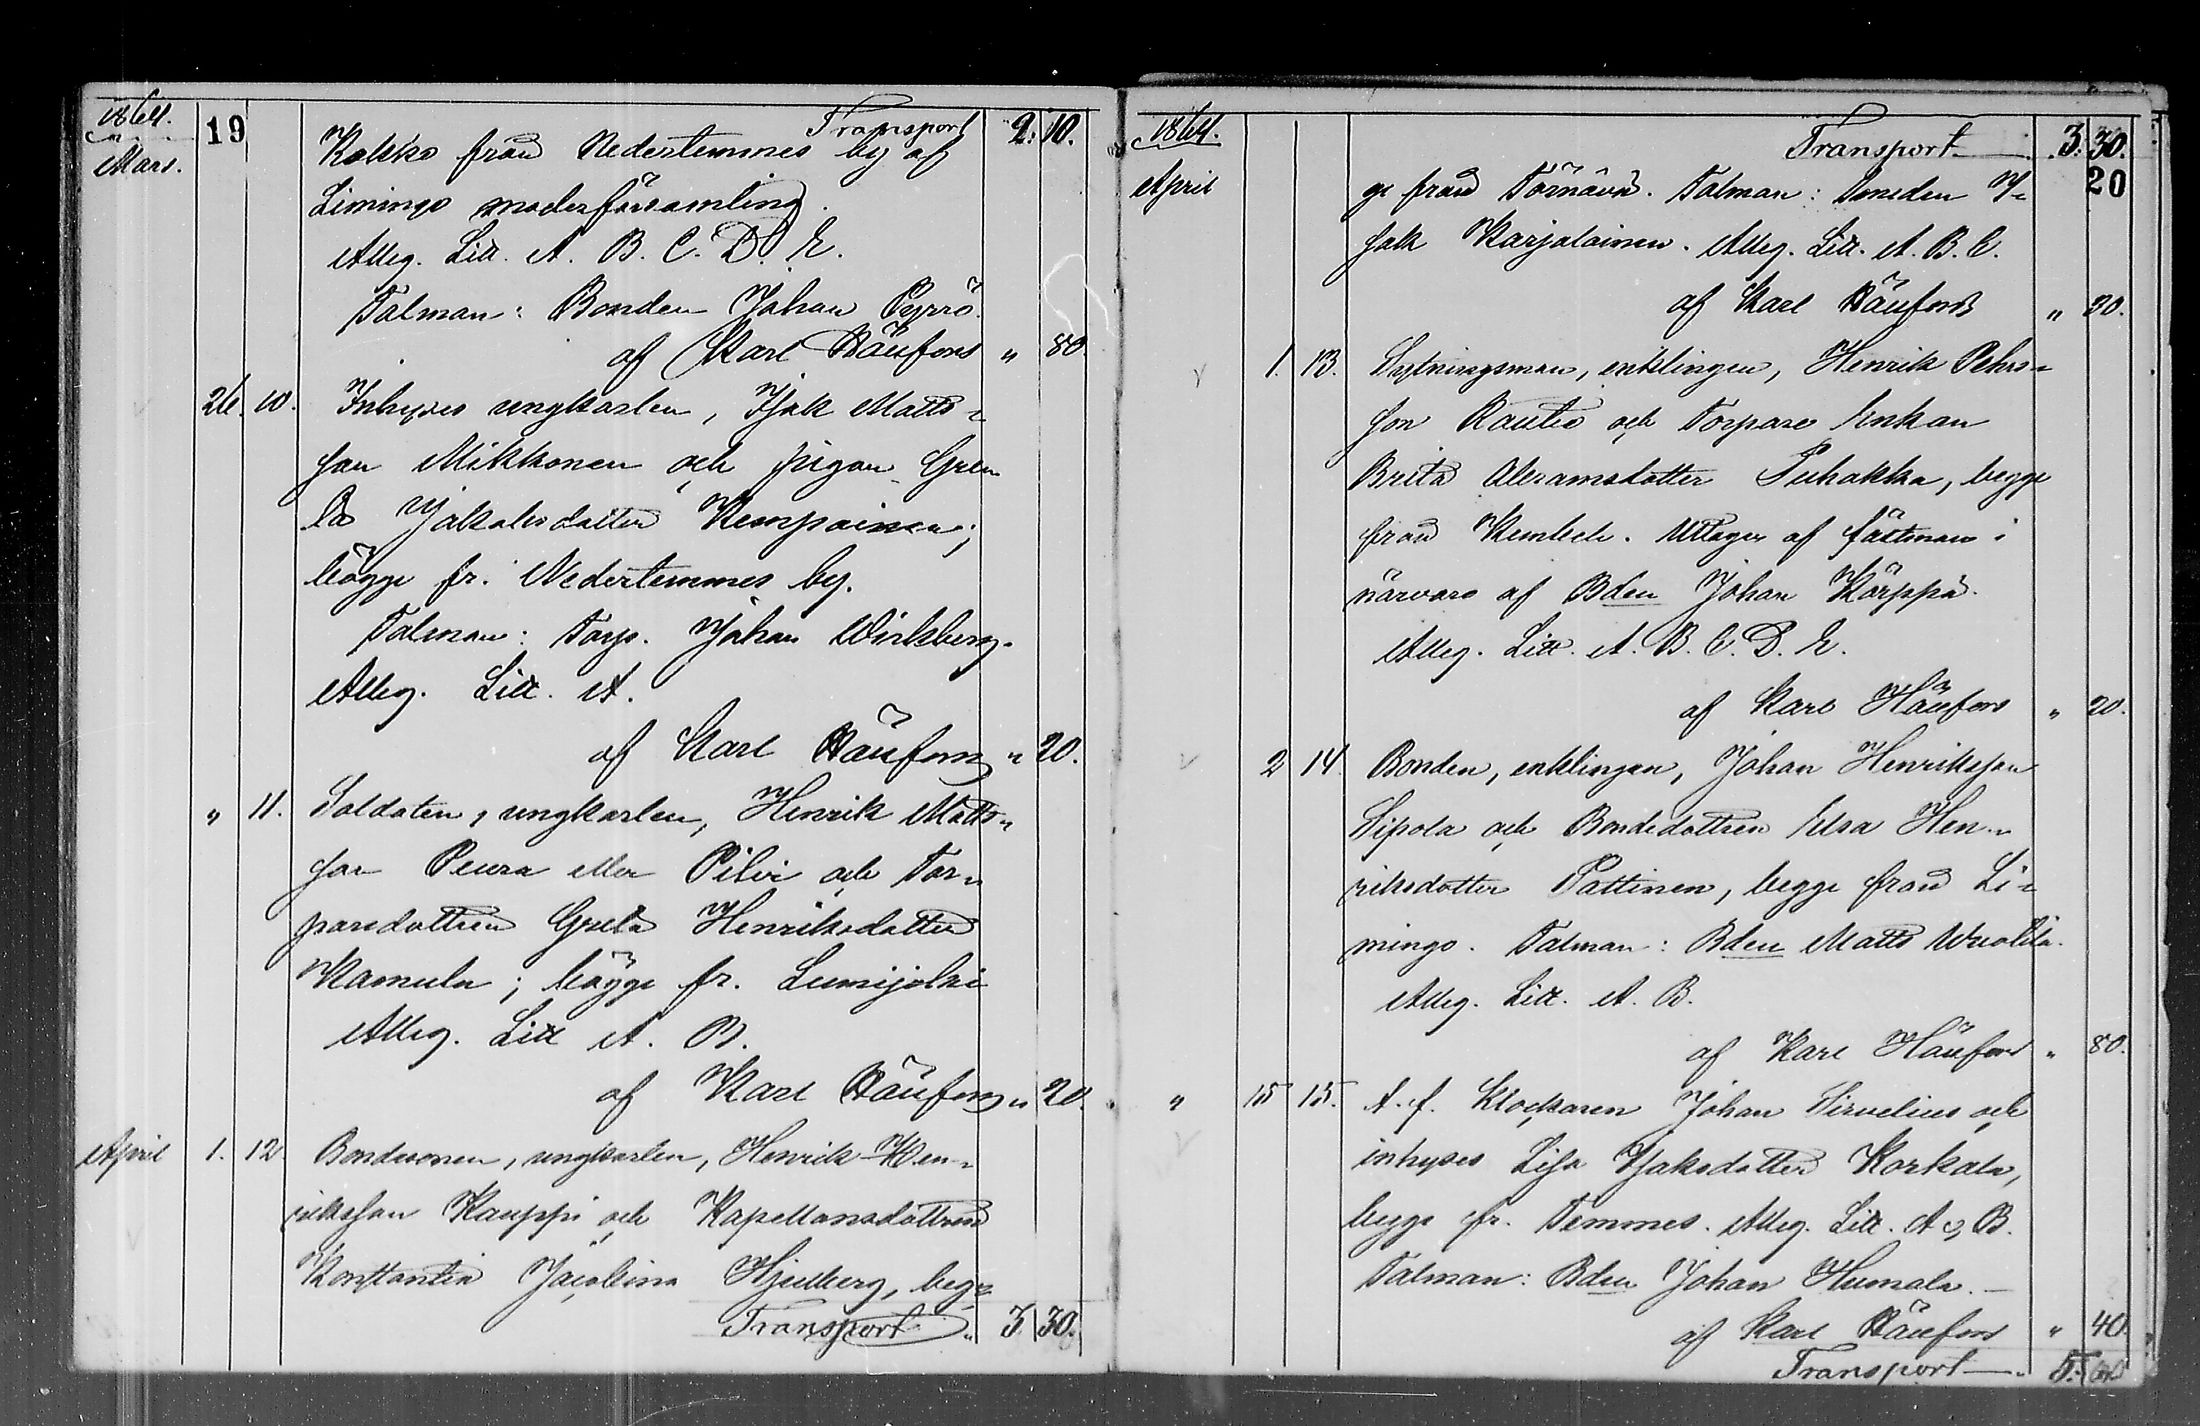 1864. 19 Transport 2. 10.
Mars. Kokko från Nedertemmes by af
Limingo moderförsamling.
Alleg. Litt. A. B. C. D. E.
Talman: Bonden Johan Pyrrö.
af Karl Häufors " 80.
26. 10. Inhyses ungkarlen, Isak Matts-
son Mikkonen och pigan Gre-
ta Jakobsdotter Kemppainen;
bägge fr. Nedertemmes by.
Talman: Torp. Johan Wirkberg.
Alleg. Litt. A.
af Karl Häufors " 20.
" 11. Soldaten, ungkarlen, Henrik Matts-
son Peura eller Pilvi och Tor-
paredottren Greta Henriksdotter
Kamula; bägge fr. Lumijoki
Alleg. Litt A. B.
af Karl Häufors " 20.
April 1. 12. Bondesonen, ungkarlen, Henrik Hen-
riksson Kauppi och Kapellansdottren
Konstantia Jacobina Hjelberg, beg-
Transport " 3 30.
1864. Transport 3. 30.
20
April ge från Törnävä. Talman: Smeden I-
sak Karjalainen. Alleg. Litt. A. B. C.
af Karl Häufors " 30.
1. 13. Sytningsman, enklingen, Henrik Pehrs-
son Rautio och Torpare Enkan
Brita Abramsdotter Puhakka, begge
från Kembele. Uttages af fästman i
närvaro af Bden Johan Kärppä.
Alleg. Litt. A. B. C. D. E.
af Karl Häufors " 20.
2 14. Bonden, enklingen, Johan Henriksson
Sipola och Bondedottren Elsa Hen-
riksdotter Pattinen, begge från Li-
mingo. Talman: Bden Matts Wuolila.
Alleg. Litt. A. B.
af Karl Häufors " 80.
" 15 15. A. f. Klockaren Johan Sirvelius och
inhyses Lisa Isaksdotter Korkala,
begge fr. Temmes. Alleg. Litt. A & B.
Talman: Bden Johan Humala.
af Karl Häufors " 40.
Transport 5. 00